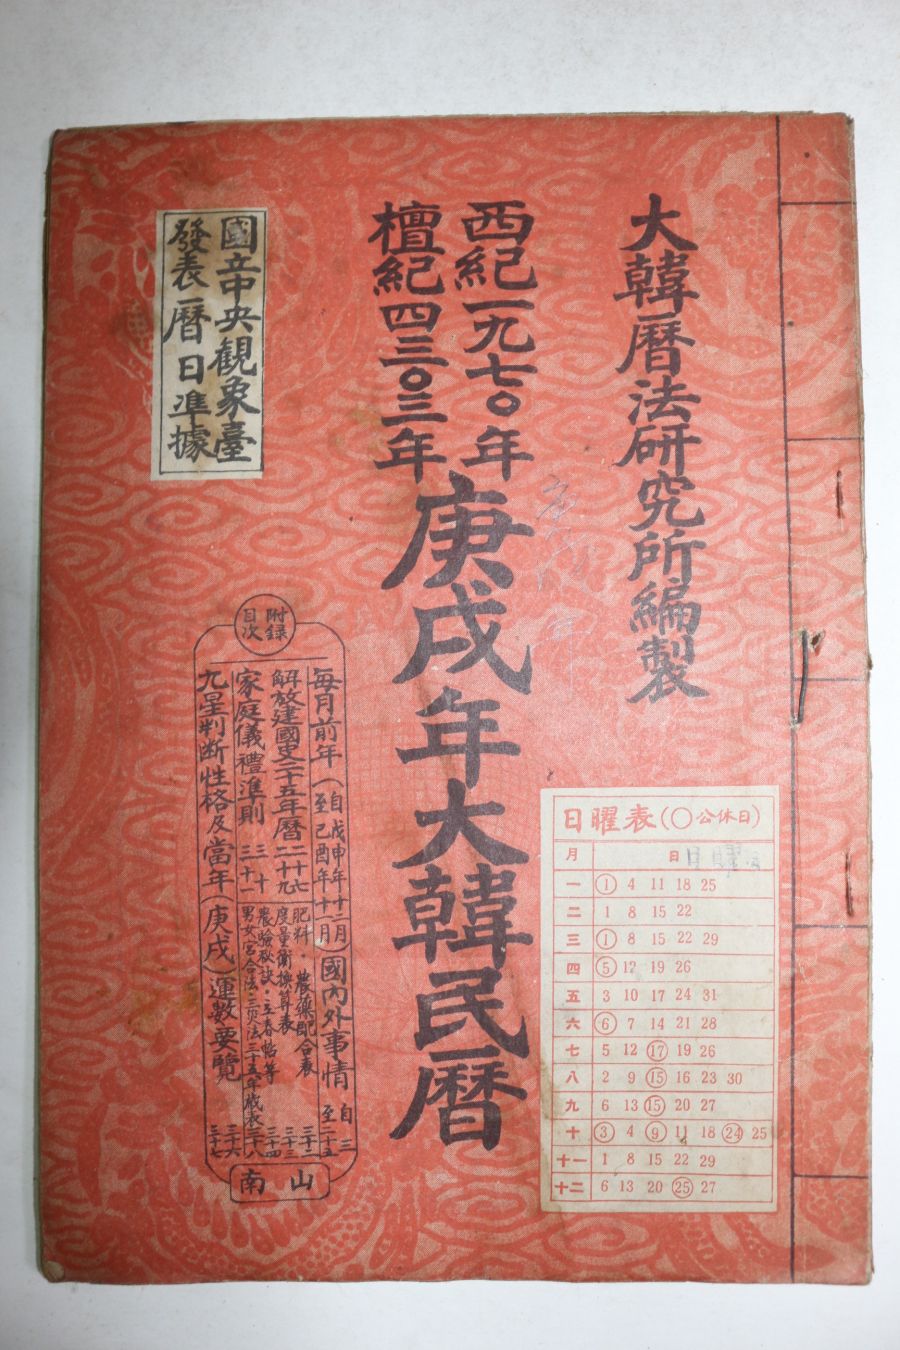 大韓曆法研究所編製
西紀一九七〇年
檀紀四三〇三年
庚戌年大韓民曆
國立中央觀象臺
發表曆日準據
附録
目次
每月前年(自戊申年十二月
至己酉年十一月)國內外事情 自三
至二十五
解放建國史二十五年曆 二十七
二十九
家庭儀禮準則 三十
三十一
肥料·農藥配合表 三十二
度量衡換算表 三十三
農驗秘訣·立春帖等 三十四
男女宮合法·三灾法·三十五年歲表 三十八
九星判断性格及當年(庚戌)運數要覽 三十六
三十七
南山
日曜表(〇公休日)
月 日
一 1 4 11 18 25
二 1 8 15 22
三 1 8 15 22 29
四 5 12 19 26
五 3 10 17 24 31
六 6 7 14 21 28
七 5 12 17 19 26
八 2 9 15 16 23 30
九 6 13 15 20 27
十 3 4 9 11 18 24 25
十一 1 8 15 22 29
十二 6 13 20 25 27